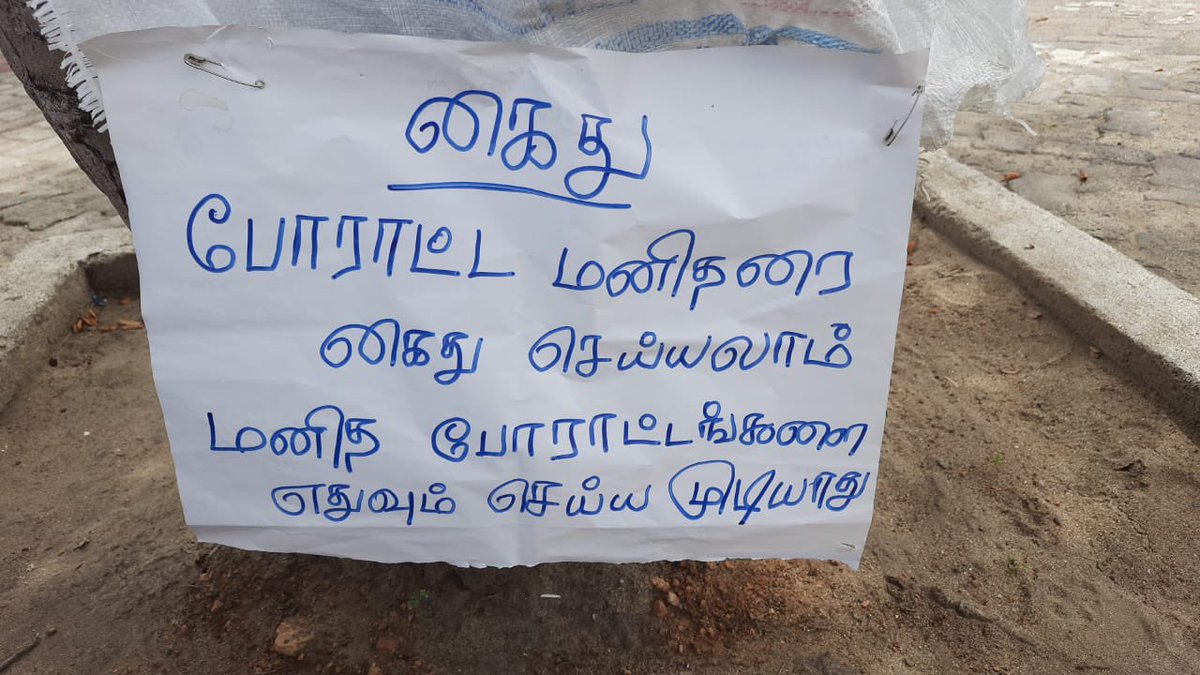 கைது
போராட்ட மனிதரை
கைது செய்யலாம்
மனித போராட்டங்களை
எதுவும் செய்ய முடியாது